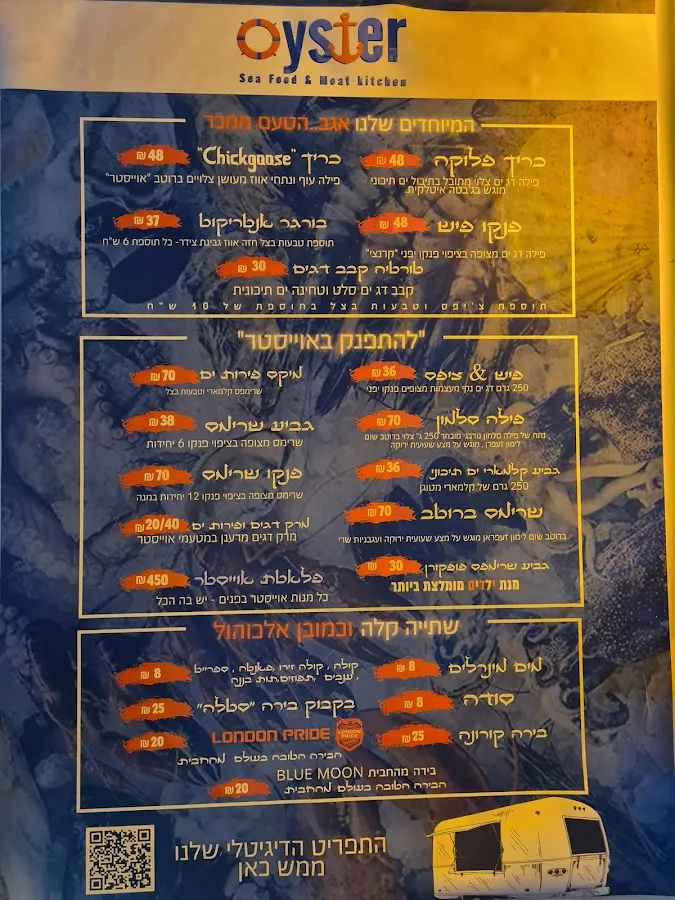 Oyster
Sea Food & Meat kitchen
המיוחדים שלנו אגב..הטעם ממכר
כריך פלוקה ₪ 48
פילה דג ים צלוי מתובל בתיבול ים תיכוני
מוגש בג'בטה איטלקית.
כריך "Chickgoose" ₪ 48
פילה עוף ונתחי אווז מעושן צלויים ברוטב "אוייסטר"
פנקו פיש ₪ 48
פילה דג ים מצופה בציפוי פנקו יפני "קרנצי"
בורגר אנטריקוט ₪ 37
תוספת טבעות בצל חזה אווז גבינת צידר- כל תוספת 6 ש"ח
טורטיה קבב דגים ₪ 30
קבב דג ים סלט וטחינה ים תיכונית
תוספת צ'יפס וטבעות בצל בתוספת של 10 ש"ח
"להתפנק באוייסטר"
פיש & ציפס ₪ 36
250 גרם דג ים נקי מעצמות מצופים פנקו יפני
מיקס פירות ים ₪ 70
שרימפס קלמארי וטבעות בצל
פילה סלמון ₪ 70
נתח של פילה סלמון נורבגי מובחר 250 ג' צלוי ברוטב שום
לימון זעפרן , מוגש על מצע שעועית ירוקה
גביע שרימס ₪ 38
שרימס מצופה בציפוי פנקו 6 יחידות
גביע קלמארי ים תיכוני ₪ 36
250 גרם של קלמארי מטוגן
פנקו שרימס ₪ 70
שרימס מצופה בציפוי פנקו 12 יחידות במנה
שרימס ברוטב ₪ 70
ברוטב שום לימון זעפראן מוגש על מצע שעועית ירוקה ועגבניות שרי
מרק דגים ופירות ים ₪ 20/40
מרק דגים מרענן במטעמי אוייסטר
גביע שרימפס פופקורן ₪ 30
מנת ילדים מומלצת ביותר
פלאטת אוייסטר ₪ 450
כל מנות אוייסטר בפנים - יש בה הכל
שתייה קלה וכמובן אלכוהול
מים מינרלים ₪ 8
קולה , קולה זירו ,פאנטה , ספרייט
, ענבים ,תפוזים,תות בננה ₪ 8
סודה ₪ 8
בקבוק בירה "סטלה" ₪ 25
בירה קורונה ₪ 25
LONDON PRIDE LONDON PRIDE ₪ 20
הבירה הטובה בעולם מהחבית.
בירה מהחבית BLUE MOON
הבירה הטובה בעולם מהחבית. ₪ 20
התפריט הדיגיטלי שלנו
ממש כאן